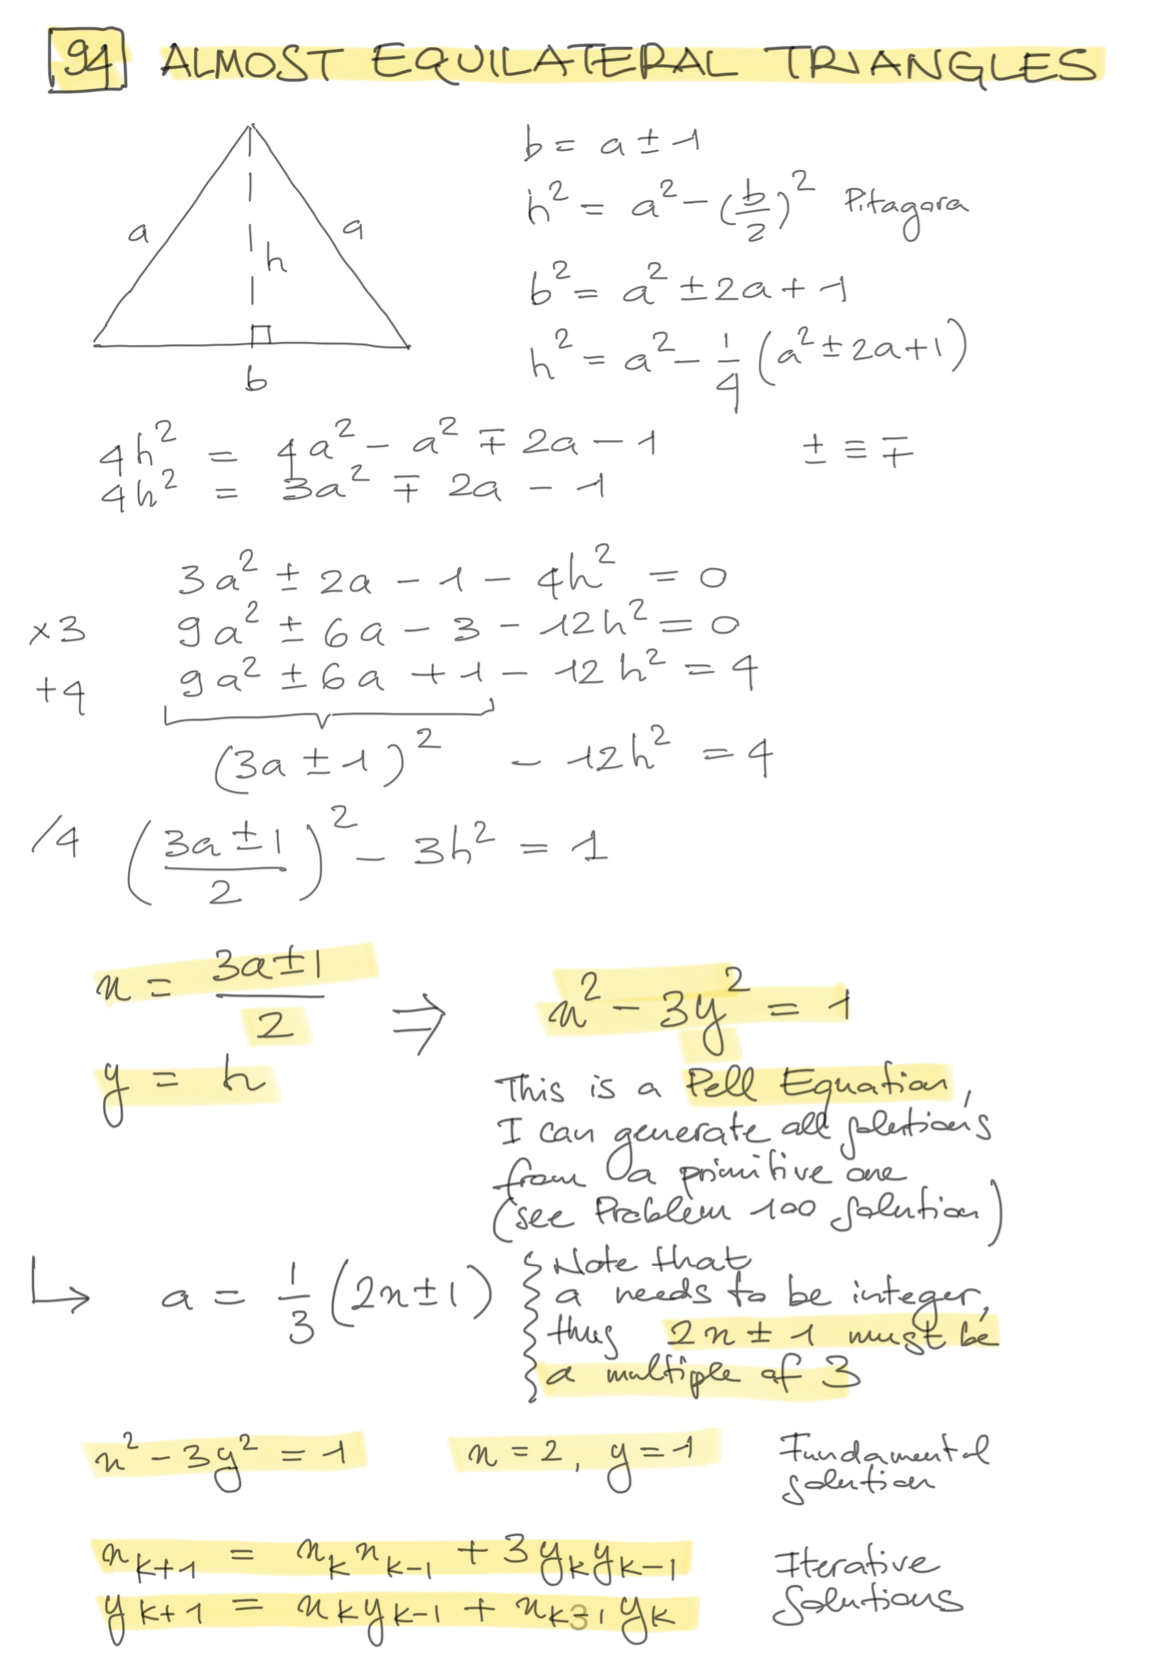 94 ALMOST EQUILATERAL TRIANGLES
a
a
h
b
b = a ± 1
h² = a² − (b/2)² Pitagora
b² = a² ± 2a + 1
h² = a² − 1/4 (a² ± 2a + 1)
4h² = 4a² − a² ∓ 2a − 1
± ≡ ∓
4h² = 3a² ∓ 2a − 1
3a² ± 2a − 1 − 4h² = 0
×3 9a² ± 6a − 3 − 12h² = 0
+4 9a² ± 6a + 1 − 12h² = 4
(3a ± 1)² − 12h² = 4
/4 ((3a ± 1)/2)² − 3h² = 1
x = (3a ± 1)/2
y = h
⇒ x² − 3y² = 1
This is a Pell Equation,
I can generate all solutions
from a primitive one
(see Problem 100 solution)
↳ a = 1/3 (2x ± 1)
Note that
a needs to be integer,
thus 2x ± 1 must be
a multiple of 3
x² − 3y² = 1 x = 2, y = 1
Fundamental
solution
xₖ₊₁ = xₖxₖ₋₁ + 3yₖyₖ₋₁
yₖ₊₁ = xₖyₖ₋₁ + xₖ₋₁yₖ
Iterative
Solutions
3